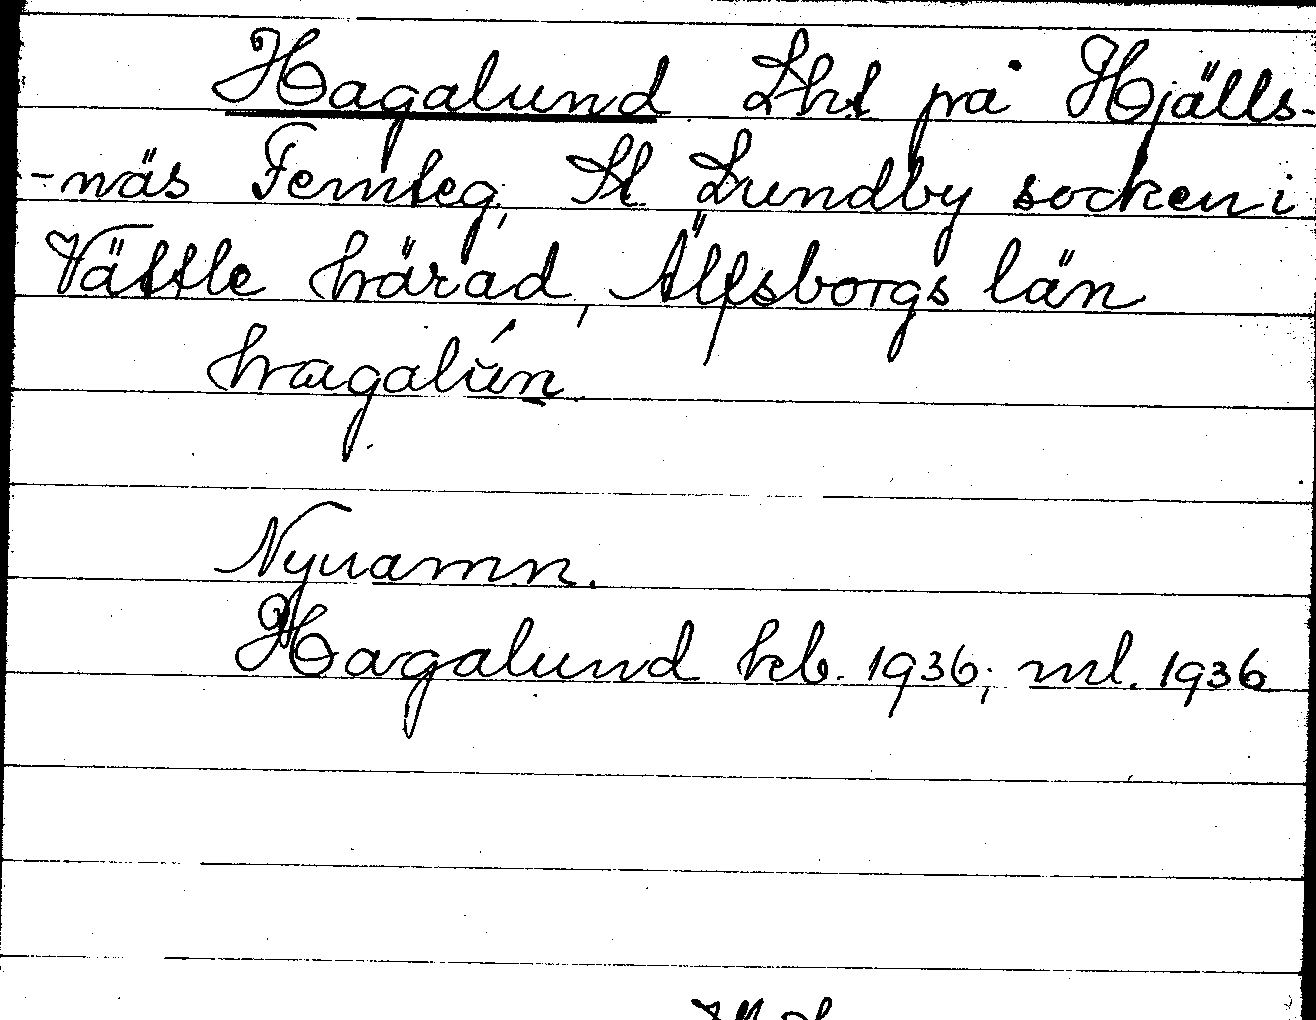 Hagalund Lht på Hjälls-
-näs Femteg, St. Lundby socken i
Vättle härad, Älfsborgs län
hagalún
Nynamn.
Hagalund kb. 1936; ml. 1936